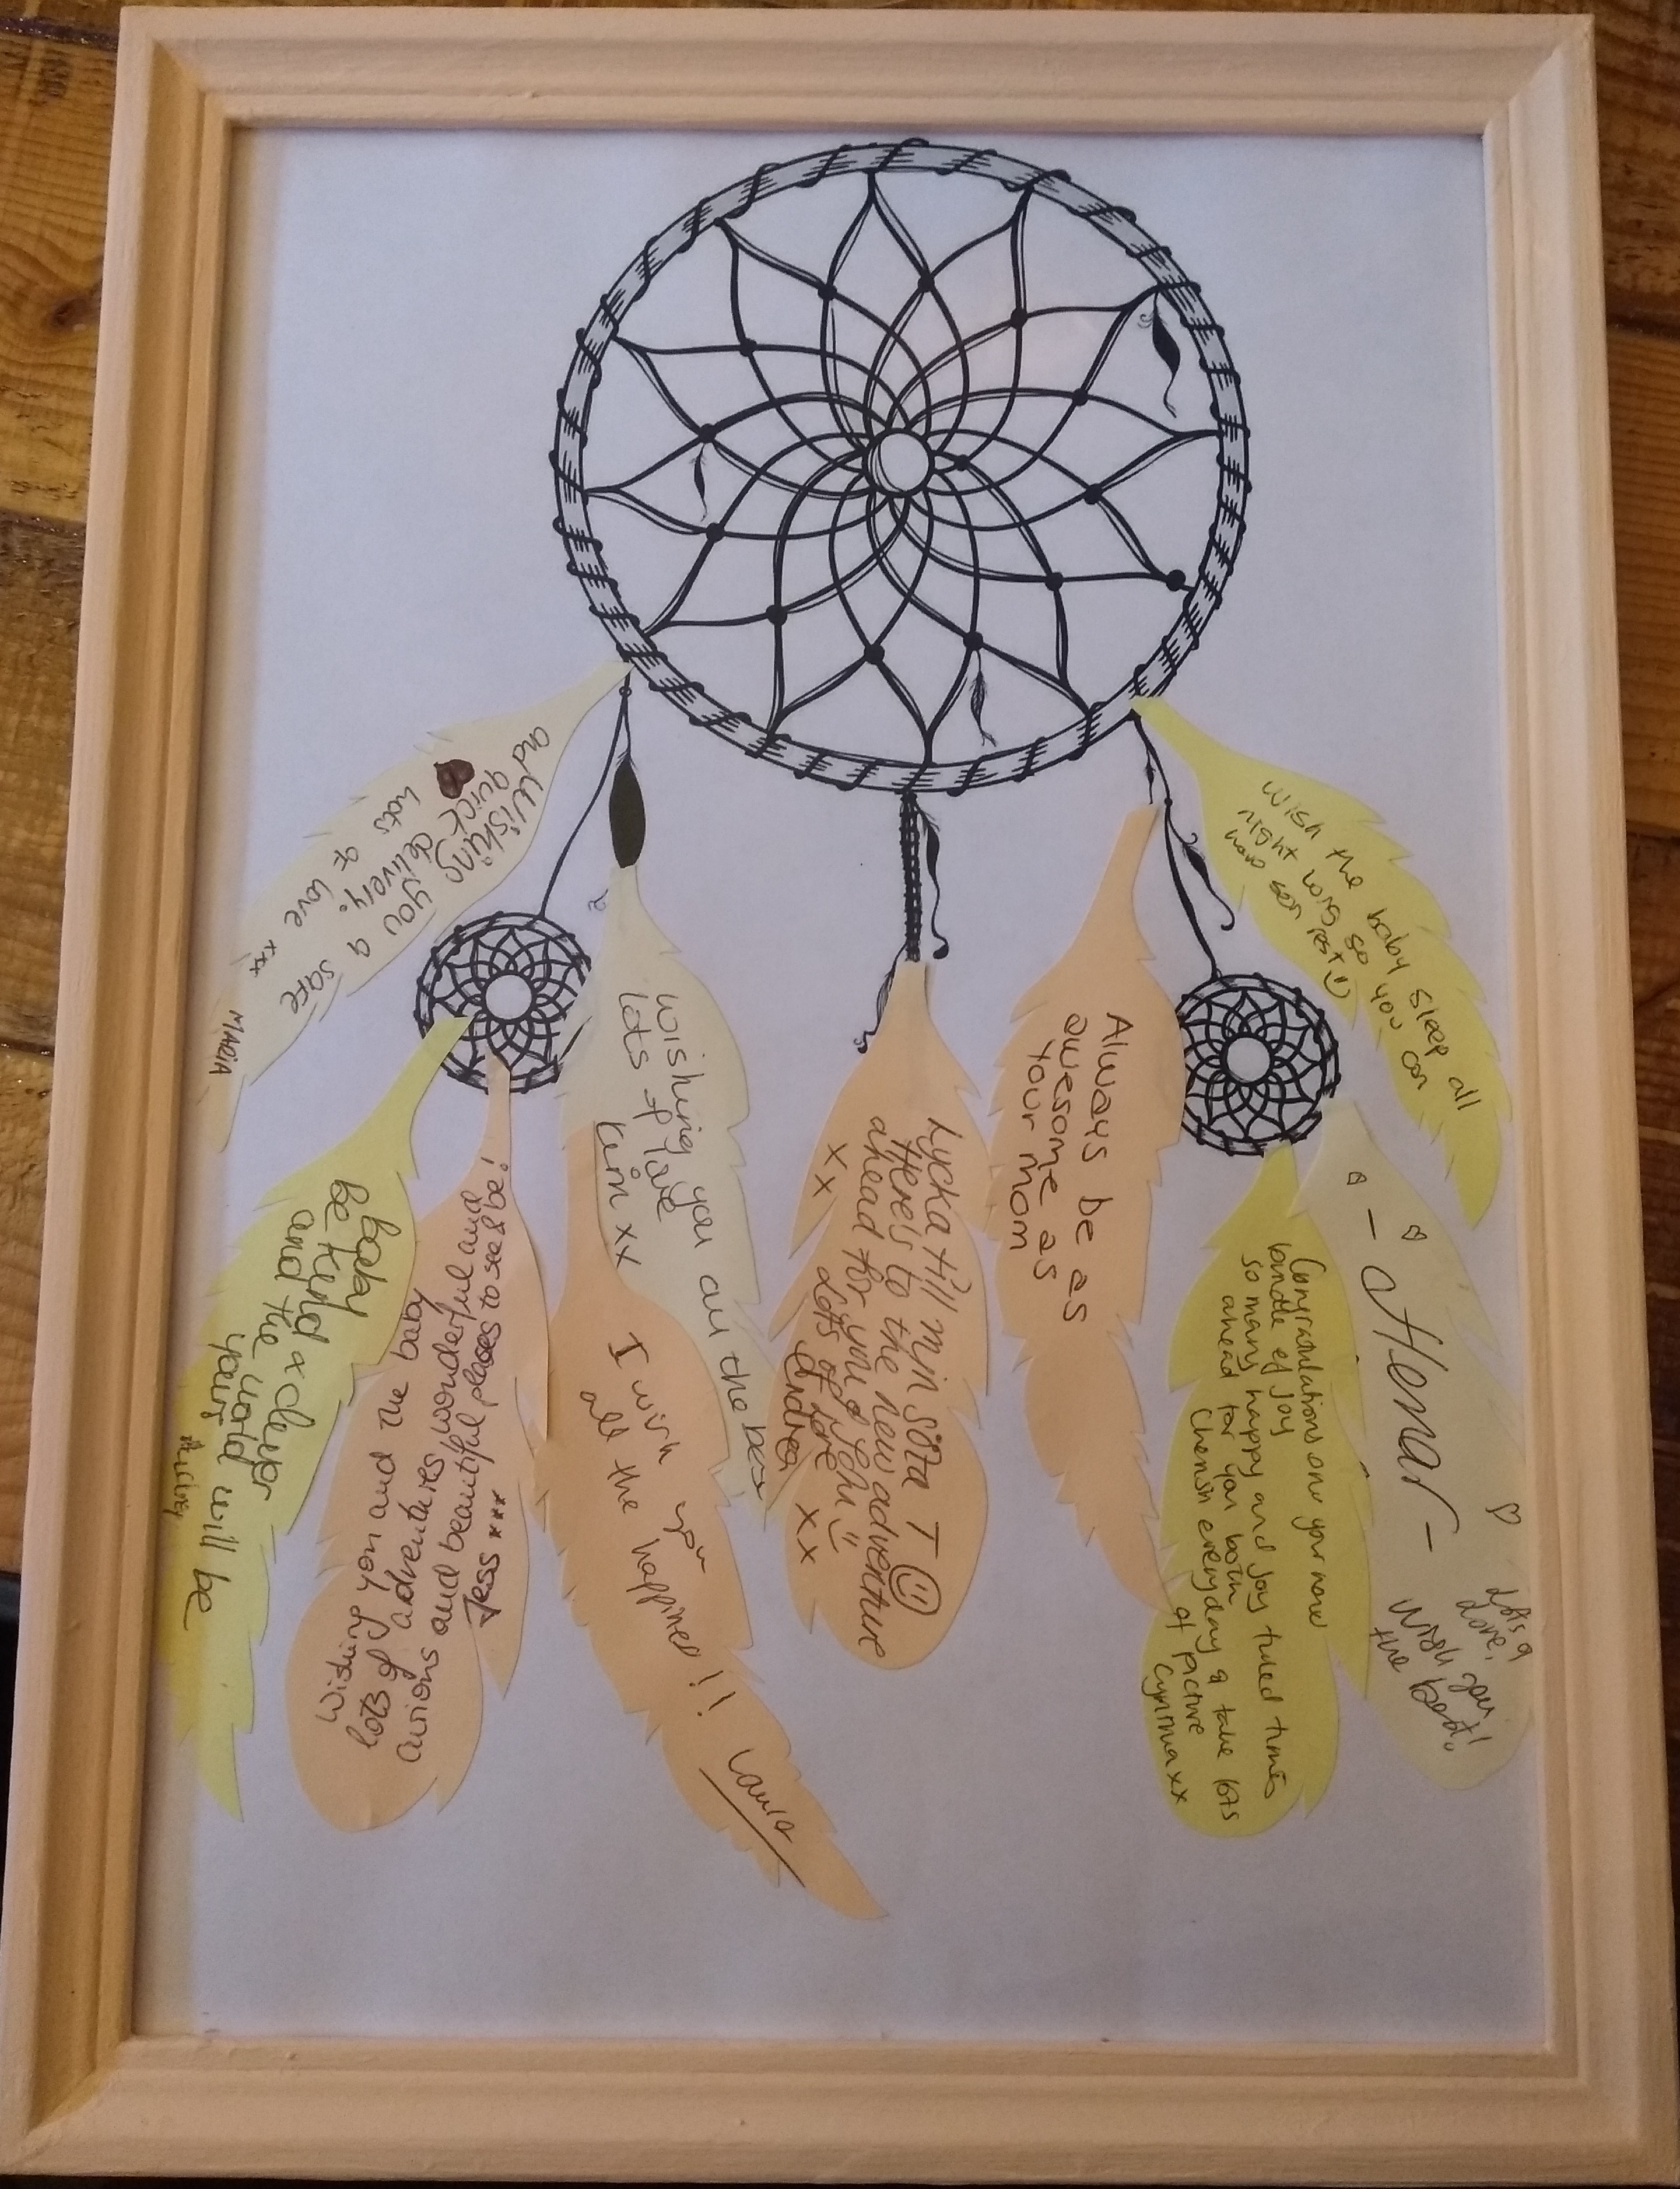 and wishing you a safe
quick delivery.
lots of love xxx
MARIA
baby
be kind & clever
and the world will be
yours
Wishing you and the baby
lots of adventures wonderful and
curious and beautiful places to see & be!
Jess xxx
wishing you all the best
lots of love
xx
I wish you
all the happines!!
Laura
Lycka till min söta T
Here's to the new adventure
ahead for you & John
xx Lots of love
Andrea xx
Always be as
awesome as
your mom
Wish the baby sleep all
night long so you can
have son rest
Congratulations on your new
bundle of Joy
so many happy and joy filled times
ahead for you both
Cherish everyday & take lots
of picture
Cynthia xx
- Henar -
Lots of
Love,
Wish you
the best!